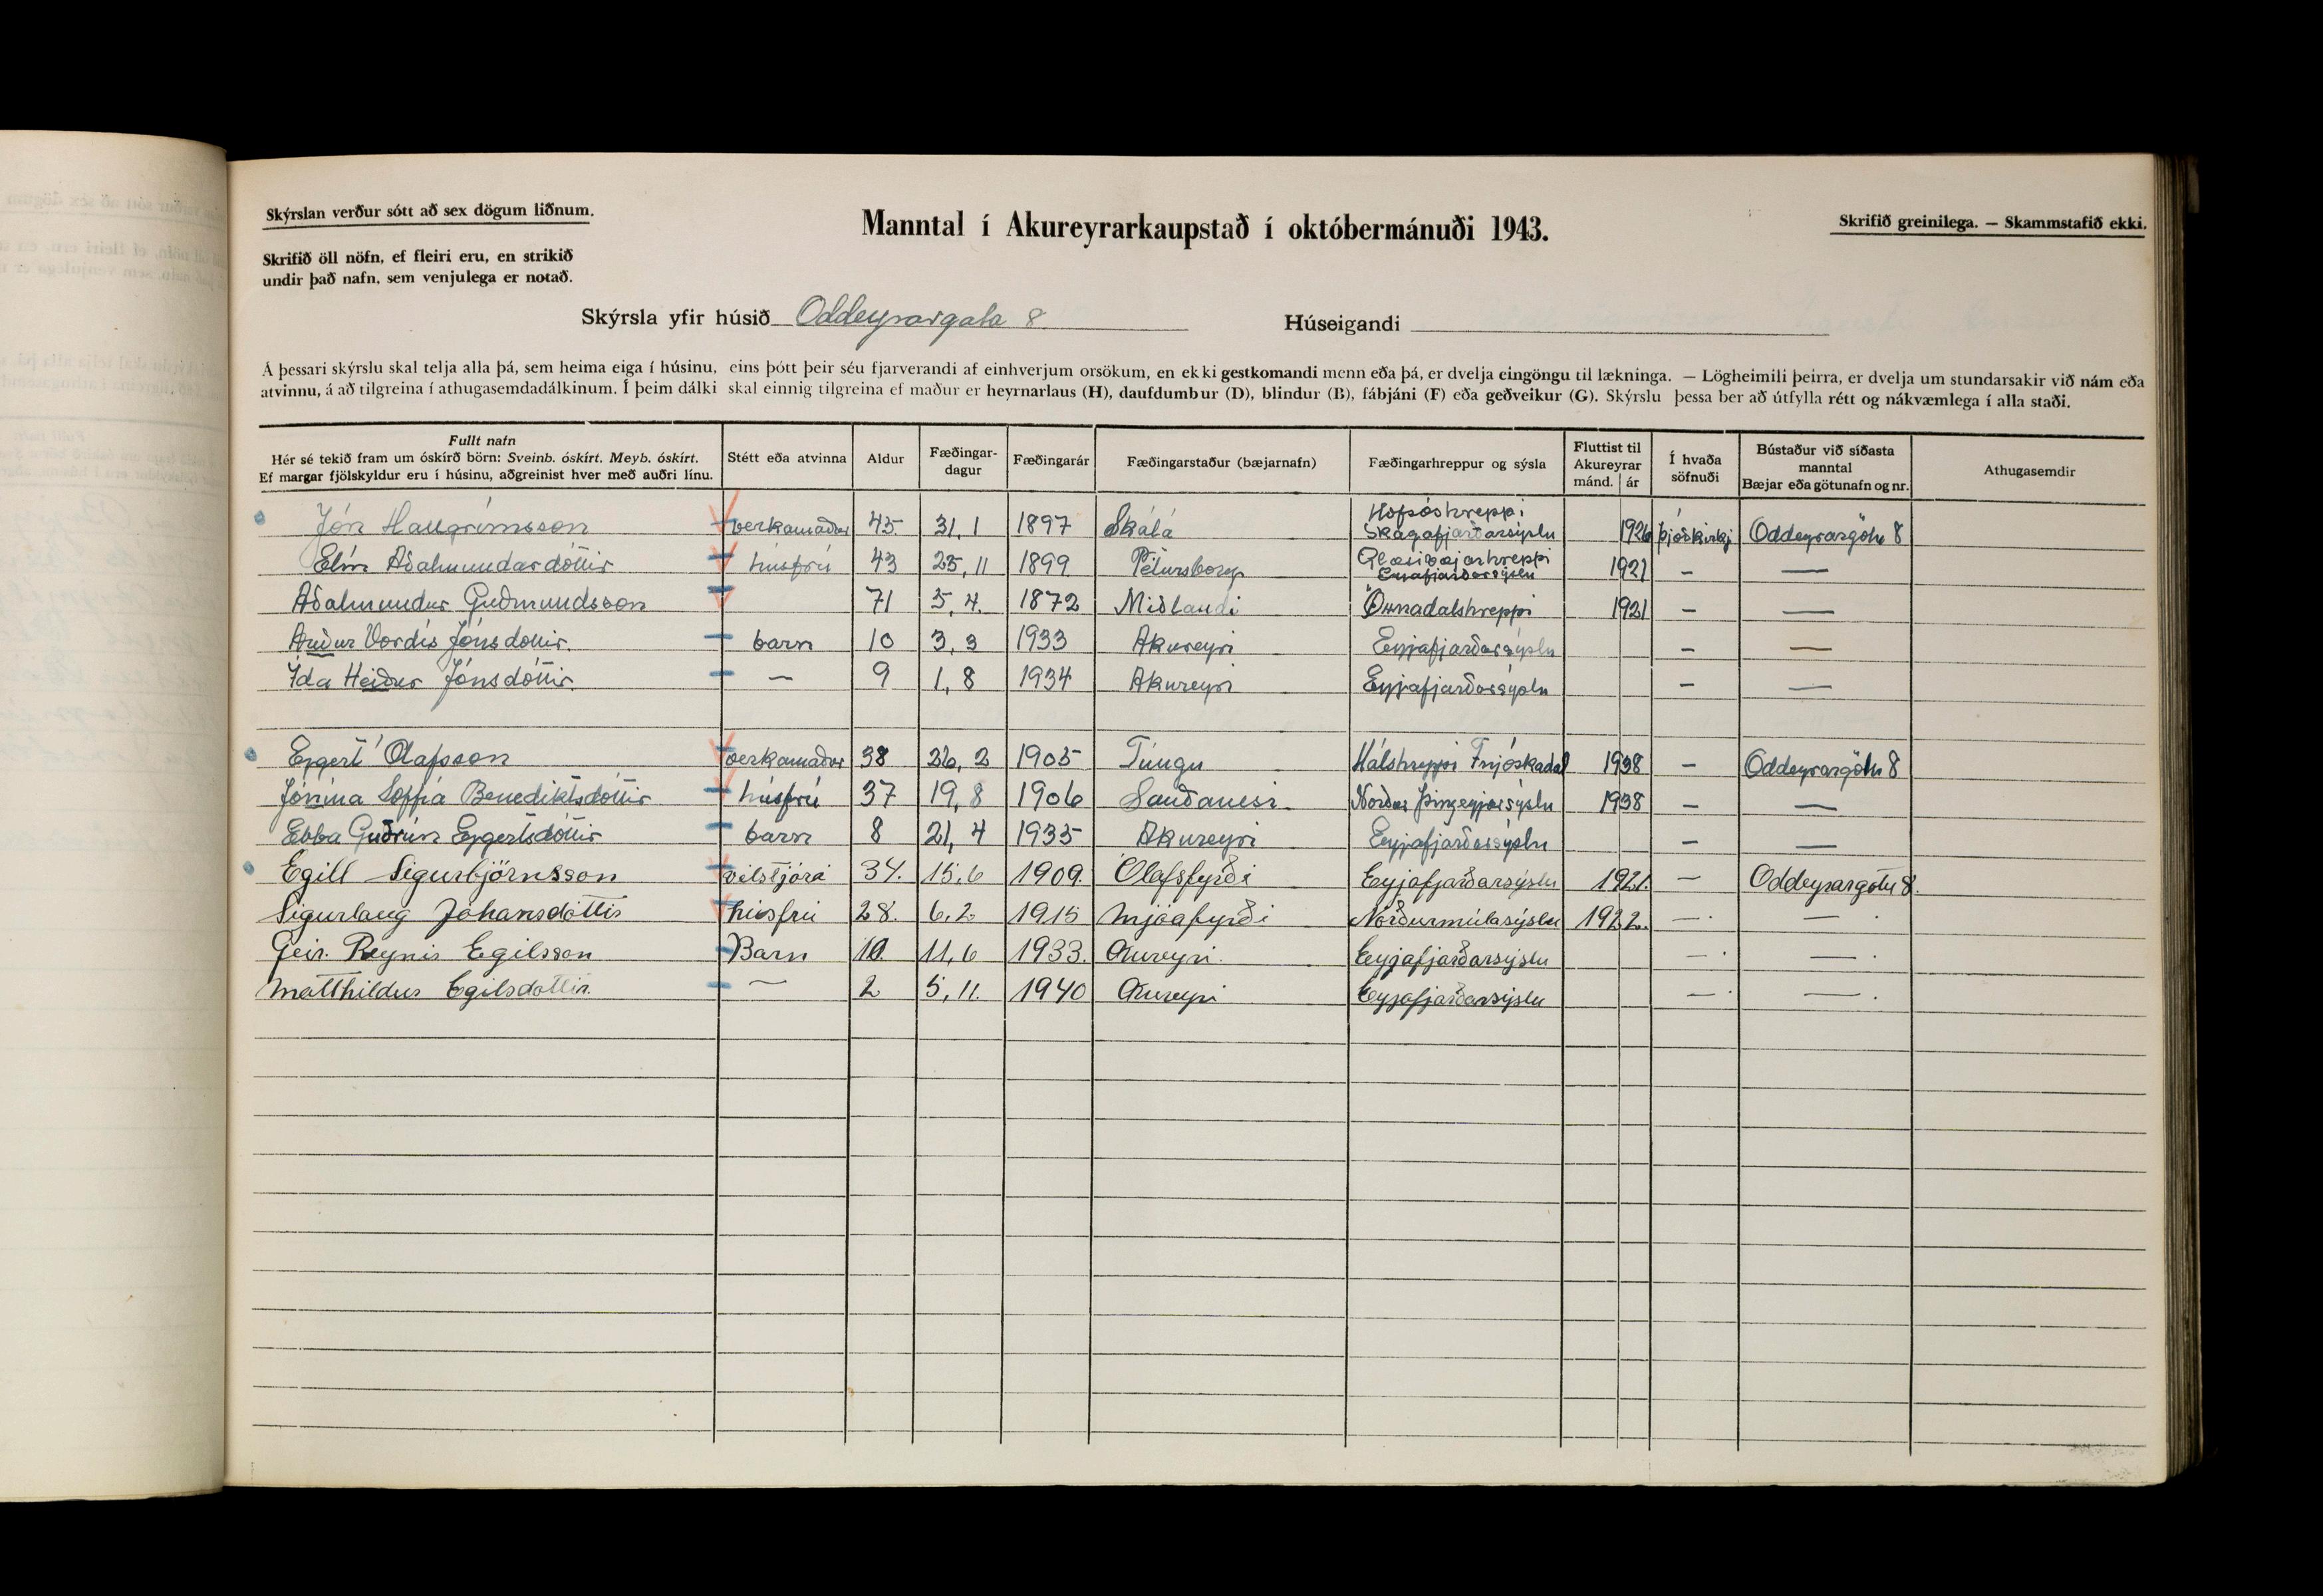 Skýrslan verður sótt að sex dögum liðnum.
Manntal í Akureyrarkaupstað í októbermánuði 1943.
Skrifið greinilega. — Skammstafið ekki.
Skrifið öll nöfn, ef fleiri eru, en strikið
undir það nafn, sem venjulega er notað.
Skýrsla yfir húsið Oddeyrargata 8 Húseigandi
Á þessari skýrslu skal telja alla þá, sem heima eiga í húsinu, eins þótt þeir séu fjarverandi af einhverjum orsökum, en ekki gestkomandi menn eða þá, er dvelja eingöngu til lækninga. — Lögheimili þeirra, er dvelja um stundarsakir við nám eða
atvinnu, á að tilgreina í athugasemdadálkinum. Í þeim dálki skal einnig tilgreina ef maður er heyrnarlaus (H), daufdumbur (D), blindur (B), fábjáni (F) eða geðveikur (G). Skýrslu þessa ber að útfylla rétt og nákvæmlega í alla staði.
Fullt nafn
Hér sé tekið fram um óskírð börn: Sveinb. óskírt. Meyb. óskírt.
Ef margar fjölskyldur eru í húsinu, aðgreinist hver með auðri línu.
Stétt eða atvinna
Aldur
Fæðingar-
dagur
Fæðingarár
Fæðingarstaður (bæjarnafn)
Fæðingarhreppur og sýsla
Fluttist til
Akureyrar
mánd. ár
Í hvaða
söfnuði
Bústaður við síðasta
manntal
Bæjar eða götunafn og nr.
Athugasemdir
Jón Hallgrímsson verkamaður 45 31,1 1897 Skálá Hofsóshreppi Skagafjarðarsýslu 1926 þjóðkirkj Oddeyrargötu 8
Elín Aðalmundardóttir húsfrú 43 25,11 1899 Pétursborg Glæsibæjarhreppi Eyjafjarðarsýslu 1921 — —
Aðalmundur Guðmundsson 71 5,4. 1872 Miðlandi Öxnadalshreppi 1921 — —
Auður Vordís Jónsdóttir. barn 10 3,3 1933 Akureyri Eyjafjarðarsýslu — —
Ída Heiður Jónsdóttir. — 9 1,8 1934 Akureyri Eyjafjarðarsýslu — —
Eggert Ólafsson verkamaður 38 26,2 1905 Túngu Hálshreppi Fnjóskadal 1938 — Oddeyrargötu 8
Jónína Soffía Benediktsdóttir húsfrú 37 19,8 1906 Sauðanesi Norður Þingeyjarsýslu 1938 — —
Ebba Guðrún Eggertsdóttir barn 8 21,4 1935 Akureyri Eyjafjarðarsýslu — —
Egill Sigurbjörnsson vélstjóri 34. 15,6 1909. Ólafsfyrði Eyjafjarðarsýslu 1921. — Oddeyrargötu 8.
Sigurlaug Jóhansdóttir húsfrú 28. 6,2 1915 Mjóafyrði Norðurmúlasýslu 1922. — —
Geir. Reynir Egilsson Barn 10. 11,6 1933. Akureyri Eyjafjarðarsýslu — —
Matthildur Egilsdóttir. — 2 5,11. 1940 Akureyri Eyjafjarðarsýslu — —